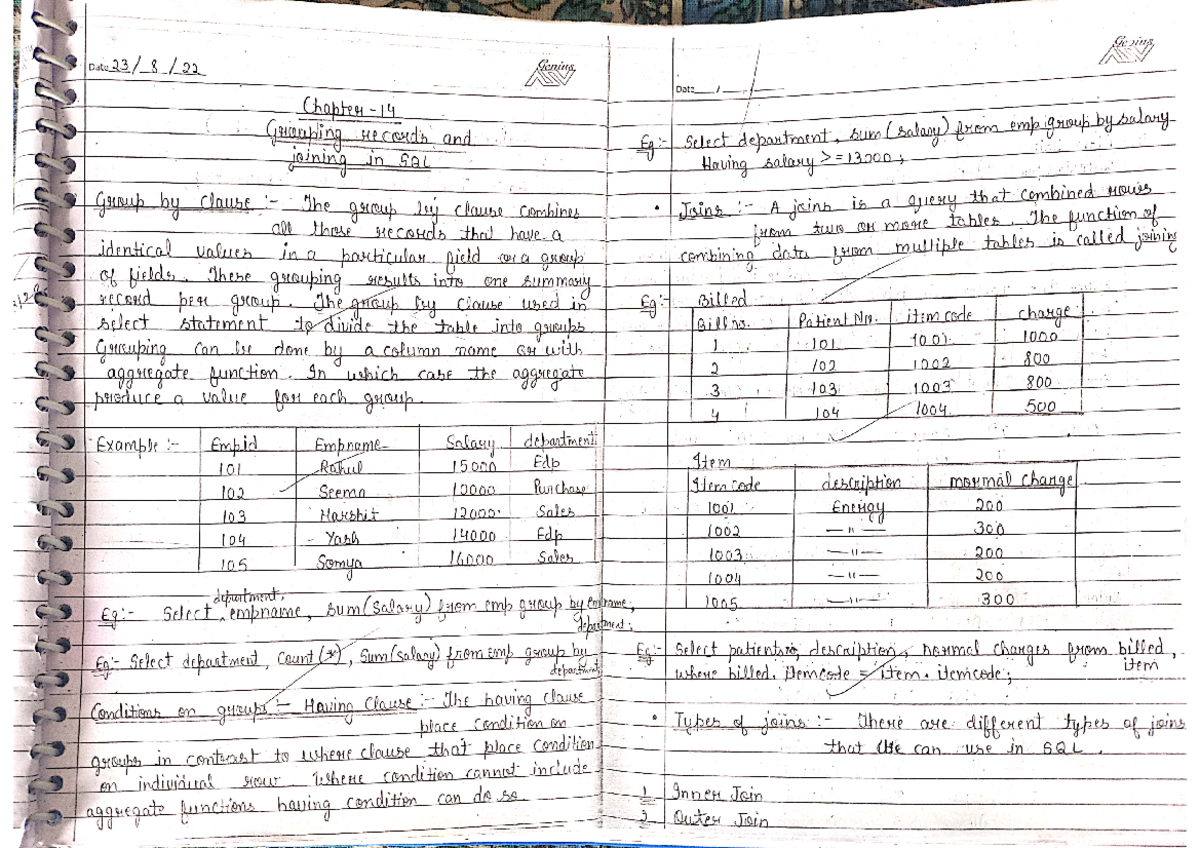 Genius
Date 23/8/22
Chapter-14
Groupling records and
joining in SQL
Group by clause :- The group by clause combines
all those records that have a
identical values in a particular field or a group
of fields. These grouping results into one summary
record per group. The group by clause used in
select statement to divide the table into groups
Grouping can be done by a column name or with
aggregate function. In which case the aggregate
produce a value for each group.
Example :- Empid Empname Salary department
101 Rahul 15000 Edp
102 Seema Purchase
103 Harshit 12000 Sales
104 Yash 14000 Edp
105 Somya 16000 Sales
department,
Eg:- Select empname, sum(salary) from emp group by empname,
department;
Eg:- Select department, Count(*), Sum(salary) from emp group by
department;
Conditions on groups :- Having Clause :- The having clause
place condition on
groups in contrast to where clause that place condition
on individual row where condition cannot include
aggregate functions having condition can do so.
Genius
Date / /
Eg:- Select department, sum(salary) from emp group by salary
Having salary >=13000;
• Joins :- A joins is a query that combined rows
from two or more tables. The function of
combining data from multiple tables is called joining
Eg:- Billed
Bill no. Patient No. item code charge
1 101 1001 1000
2 102 1002 800
3 103 1003 800
4 104 1004 500
Item
Item code description normal charge
1001 Energy 200
1002 —"— 300
1003 —"— 200
1004 —"— 200
1005 —"— 300
Eg:- Select patientno, description, normal charges from billed,
item
where billed. itemcode = item. itemcode;
• Types of joins :- There are different types of joins
that we can use in SQL.
1 Inner Join
2 Outer Join